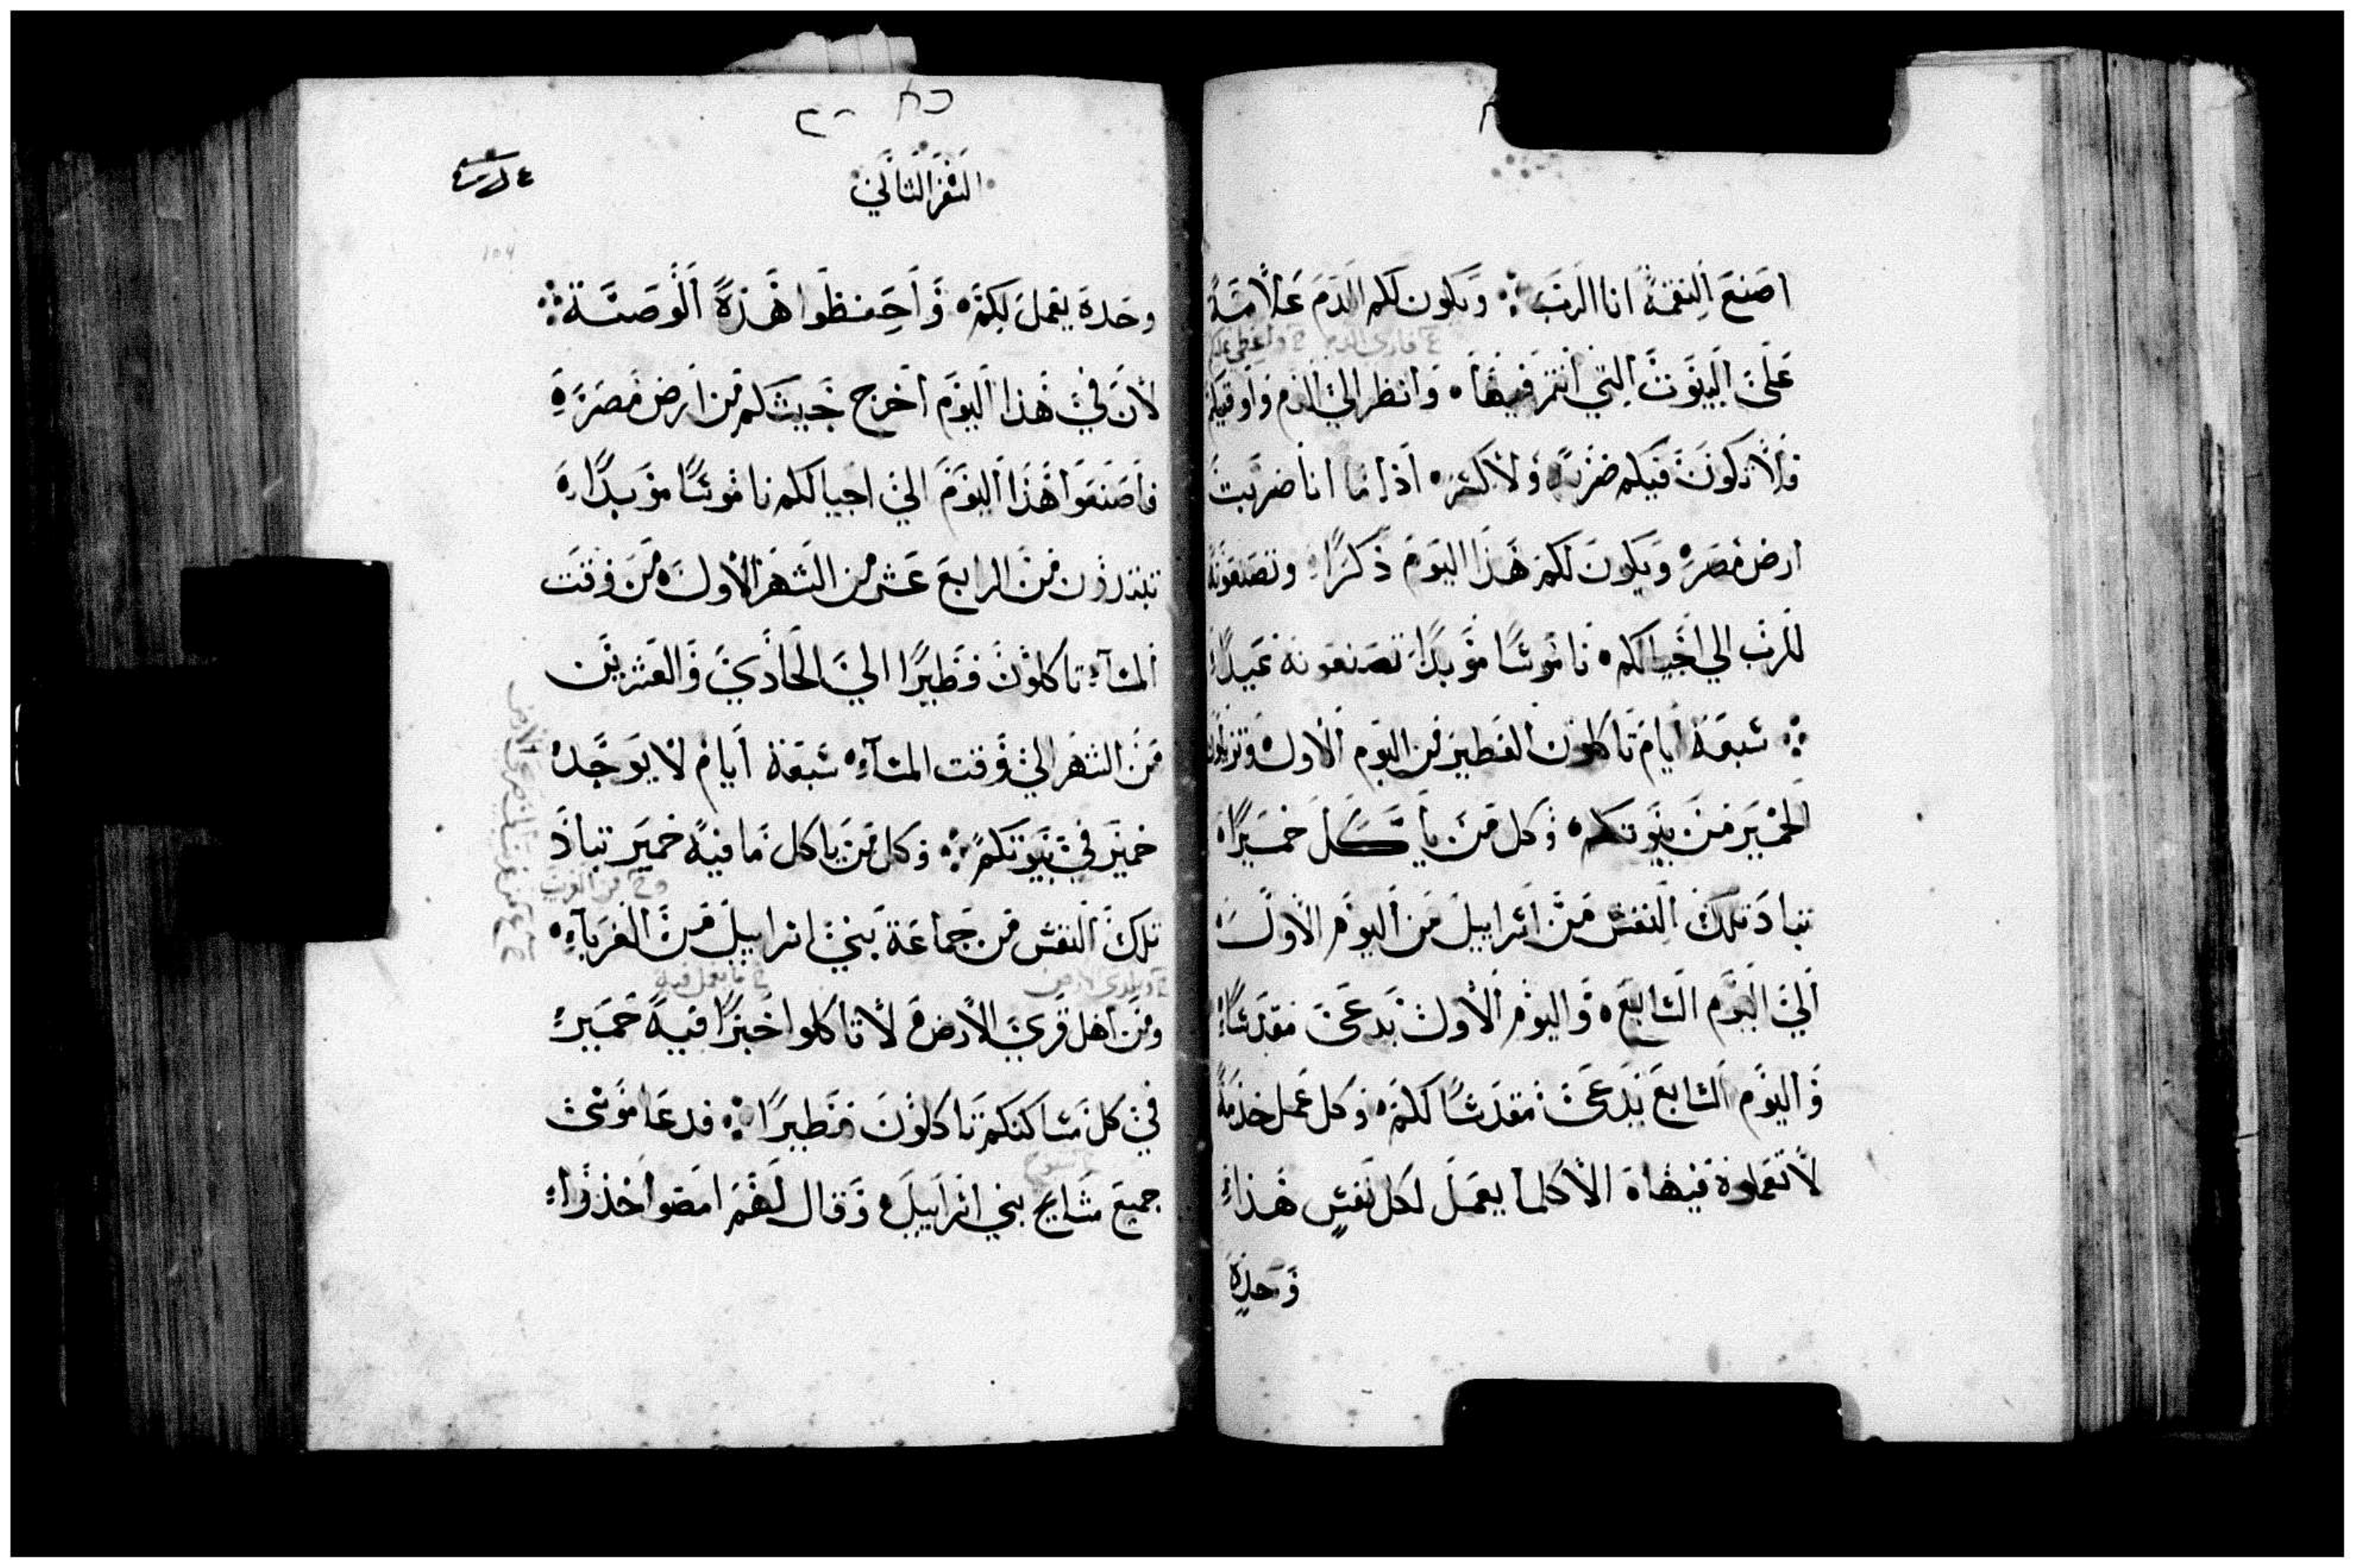 اصنع النقمة انا الرب ܀ ويكون لكم الدم علامة
علي البيوت التي انتم فيها • وانظر الي الدم واوقيكم
فلا تكون فيكم ضربة ولا كسر • اذا ما انا ضربت
ارض مصر • ويكون لكم هذا اليوم ذكرا • وتصنعونه
للرب الي اجيالكم • ناموسا موبدا تصنعونه عيدا •
܀ سبعة ايام تاكلون الفطير من اليوم الاول
الخمير من بيوتكم • وكل من ياكل خميرا •
تباد تلك النفس من اسراييل من اليوم الاول
الي اليوم السابع • واليوم الاول يدعي مقدسا •
واليوم السابع يدعي مقدسا لكم • وكل عمل خدمة
لا تعملوه فيها • الا كلما يعمل لكل نفس هذا •
وحده
السفر الثاني
وحده يعمل لكم • واحفظوا هذه الوصية ܀
لان في هذا اليوم اخرج جيشكم من ارض مصر •
فاصنعوا هذا اليوم الي اجيالكم ناموسا موبدا •
تبتدون من الرابع عشر من الشهر الاول • من وقت
المساء • تاكلون فطيرا الي الحادي والعشرين
من الشهر الي وقت المساء • سبعة ايام لا يوجد
خمير في بيوتكم ܀ وكل من ياكل ما فيه خمير تباد
من الغربا
تلك النفس من جماعة بني اسراييل من الغرباء •
ما يعمل فيه
ومن اهل قري الارض • لا تاكلوا خبزا فيه خمير •
في كل مساكنكم تاكلون فطيرا ܀ فدعا موسي
جميع مشايخ بني اسراييل • وقال لهم امضوا خذوا •